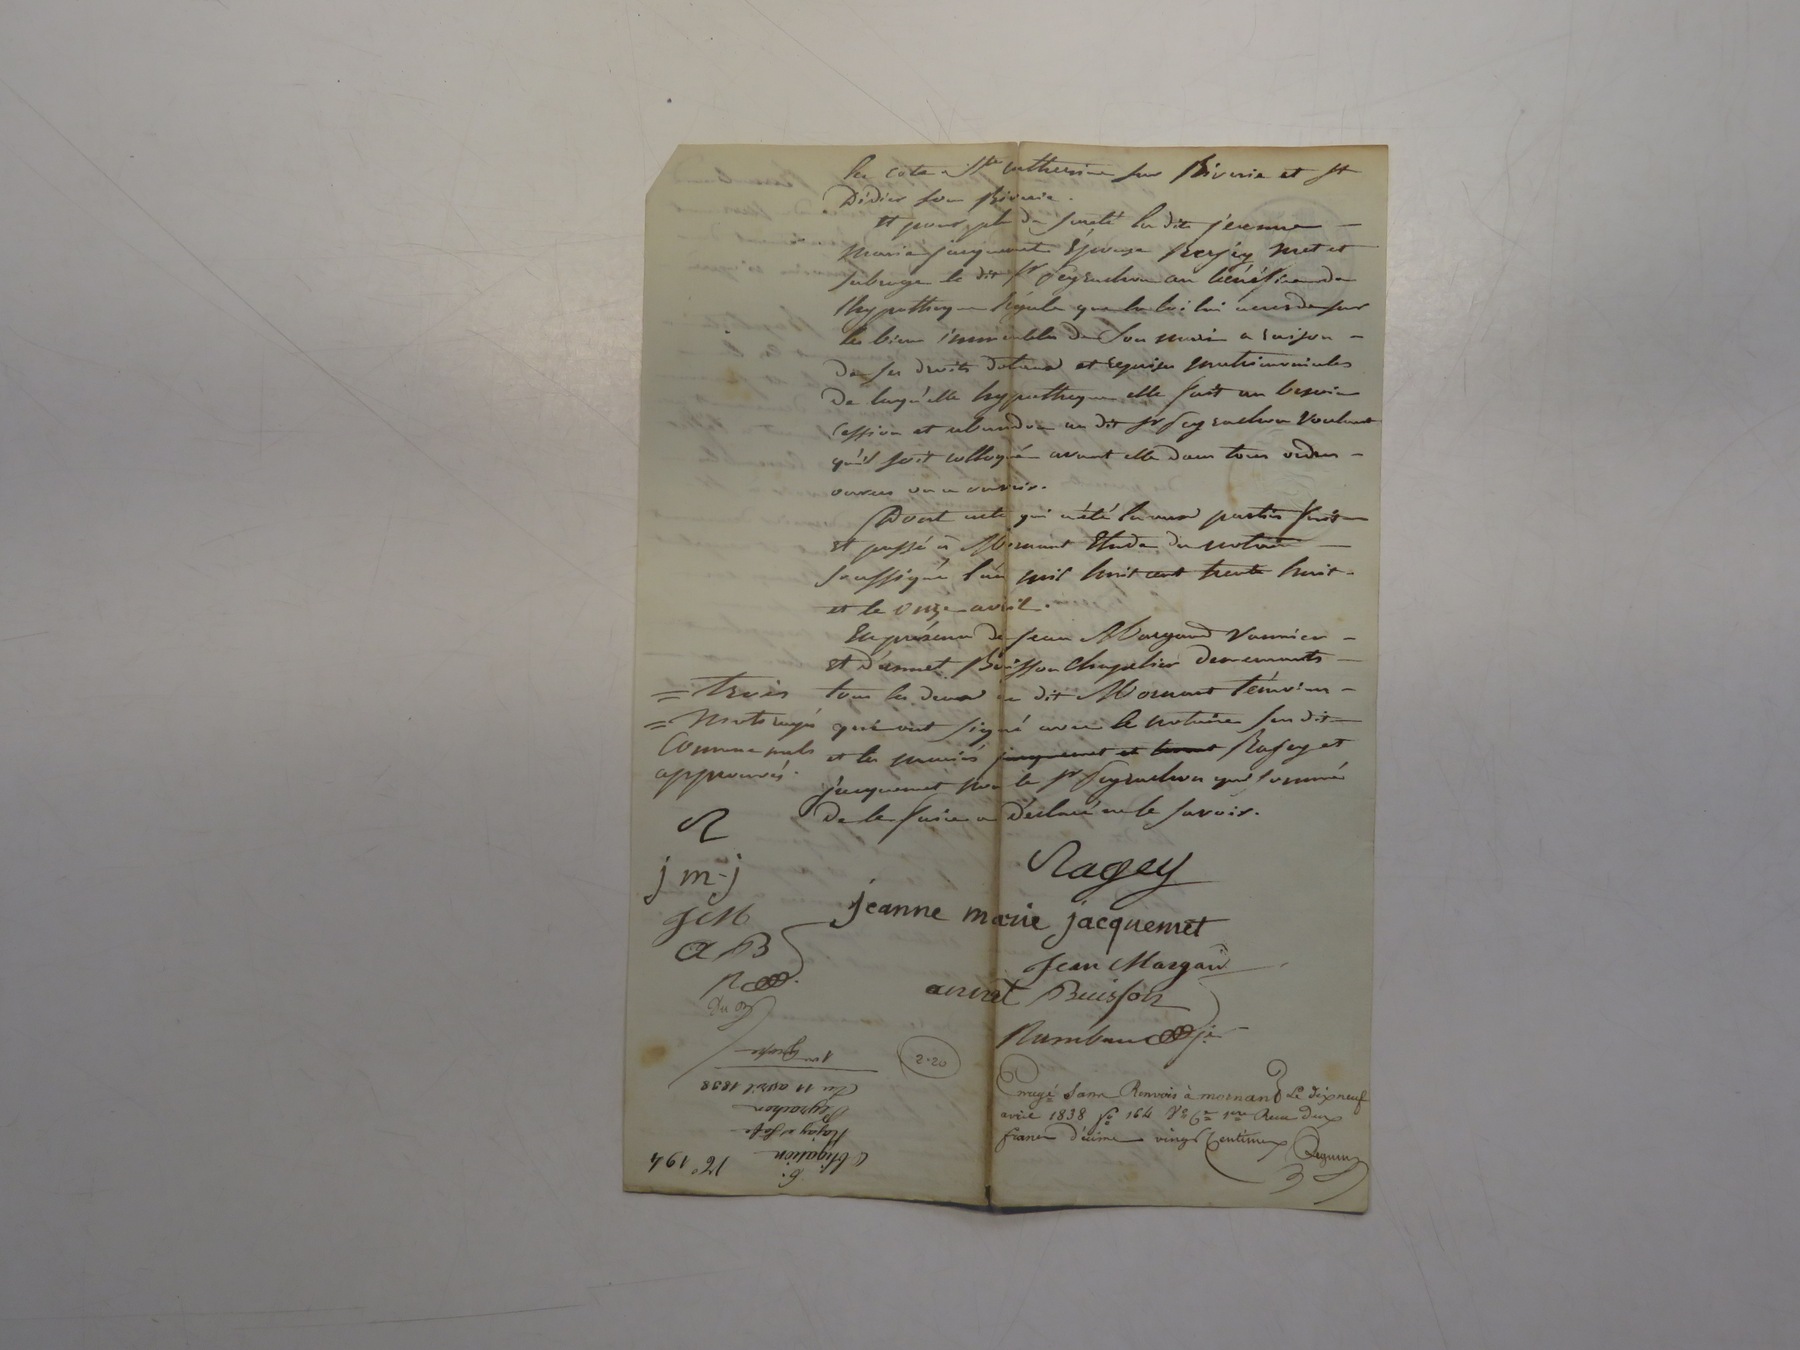 les cotes a Ste catherine sur Riverie et St
Didier sou Riverie.
Et pour plus de sureté la dite jeanne
marie jacquemet Epouse Ragey met et
subroge le dit Sr Feyrachon au bénéfice de
lhypotheque légale que la loi lui accorde sur
les biens immeubles de son mari a raison
de ses droits dotaux et reprises matrimoniales
De laquelle hypotheque elle fait au besoin
Cession et abandon au dit Sr Feyrachon voulant
qu'il soit colloqué avant elle dans tous ordres
ouvers ou a ouvrir.
Dont acte qui a été lu aux parties fait
et passé à Mornant Etude du notaire
soussigné l'an mil huit cent trente huit
et le onze avril.
En présence de jean Margand vannier
et d'annet Buisson chapelier demeurants
tous les deux au dit Mornant témoins
qui ont signé avec le notaire susdit
et les mariés jacquemet et Ragey et
jacquemet non le Sr Feyrachon qui sommé
de le faire a déclaré ne le savoir.
= trois
= mots rayés
Comme nuls
approuvés.
R
j m-j
J M
a B
R
Ragey
jeanne marie jacquemet
Jean Margand
annet Buisson
Rambaud
2.20
Enregé sans Renvois à mornant Le dix neuf
avril 1838 fo 164 Vo Cse 1ere Recu deux
francs décime vingt Centimes
No 194
Obligation
Ragey et
Feyrachon
Du 11 avril 1838
1re grosse